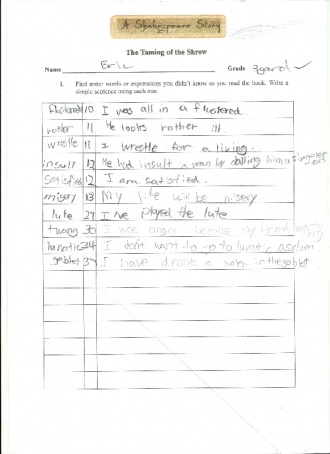 A Shakespeare Story
The Taming of the Shrew
Name Eric Grade
1. Find some words or expressions you didn't know as you read the book. Write a
simple sentence using each one.
flustered 10 I was all in a flustered.
rather 11 He looks rather ill
wrestle 11 I wrestle for a living.
insult 12 He had insult a man by calling him a
satisfied 12 I am satisfied.
misery 13 My life will be misery
lute 27 I've played the lute
twang 30 I was angry because my friend
lunatic 34 I don't want to go to lunatic asylum
goblet 37 I have drank a water in the goblet